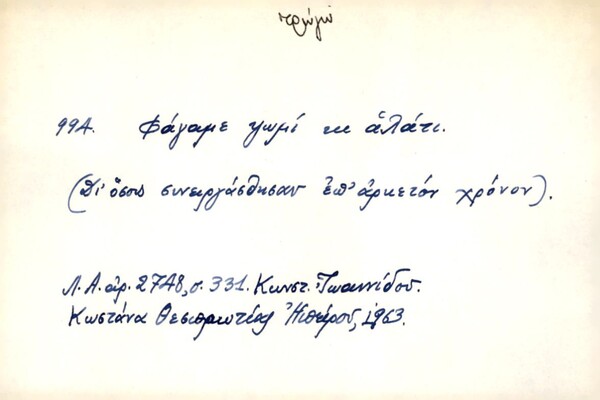 τρώγω
994. Φάγαμε ψωμί κι ἁλάτι.
(Δι' ὅσους συνειργάσθησαν ἐπ' ἀρκετόν χρόνον).
Λ.Α. ἀρ. 2748, σ. 331. Κωνστ. Ἰωαννίδου.
Κωστάνα Θεσπρωτίας Ἠπείρου, 1963.